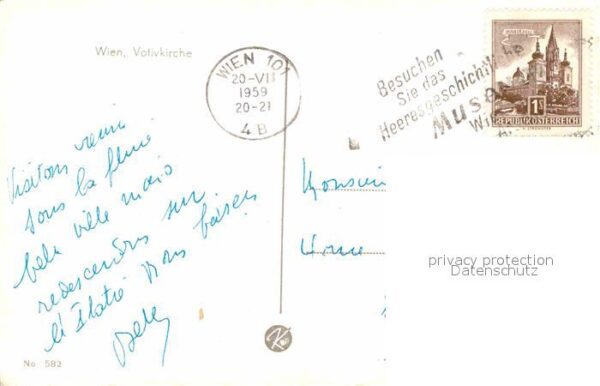 Wien, Votivkirche
WIEN 101
20-VII
1959
20-21
4 B
Besuchen
Sie das
Heeresgeschichtl
Muse
Wi
1S
REPUBLIK ÖSTERREICH
Visitons
sous la pluie
belle ville mais
redescendons sur
l'Italie Bons baisers
Monsieur
privacy protection
Datenschutz
No 582